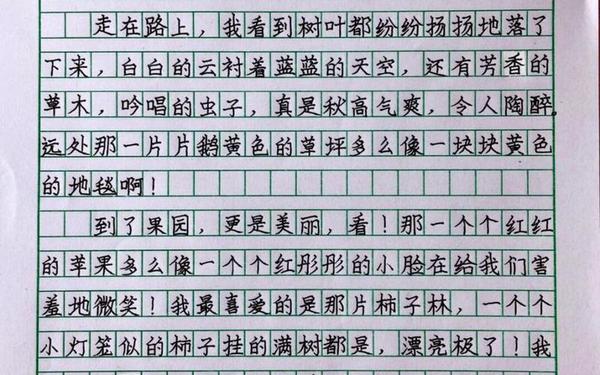 走在路上，我看到树叶都纷纷扬扬地落了
下来，白白的云衬着蓝蓝的天空，还有芳香的
草木，吟唱的虫子，真是秋高气爽，令人陶醉。
远处那一片片鹅黄色的草坪多么像一块块黄色
的地毯啊！
到了果园，更是美丽，看！那一个个红红
的苹果多么像一个个红彤彤的小脸在给我们害
羞地微笑！我最喜爱的是那片柿子林，一个个
小灯笼似的柿子挂的满树都是，漂亮极了！我